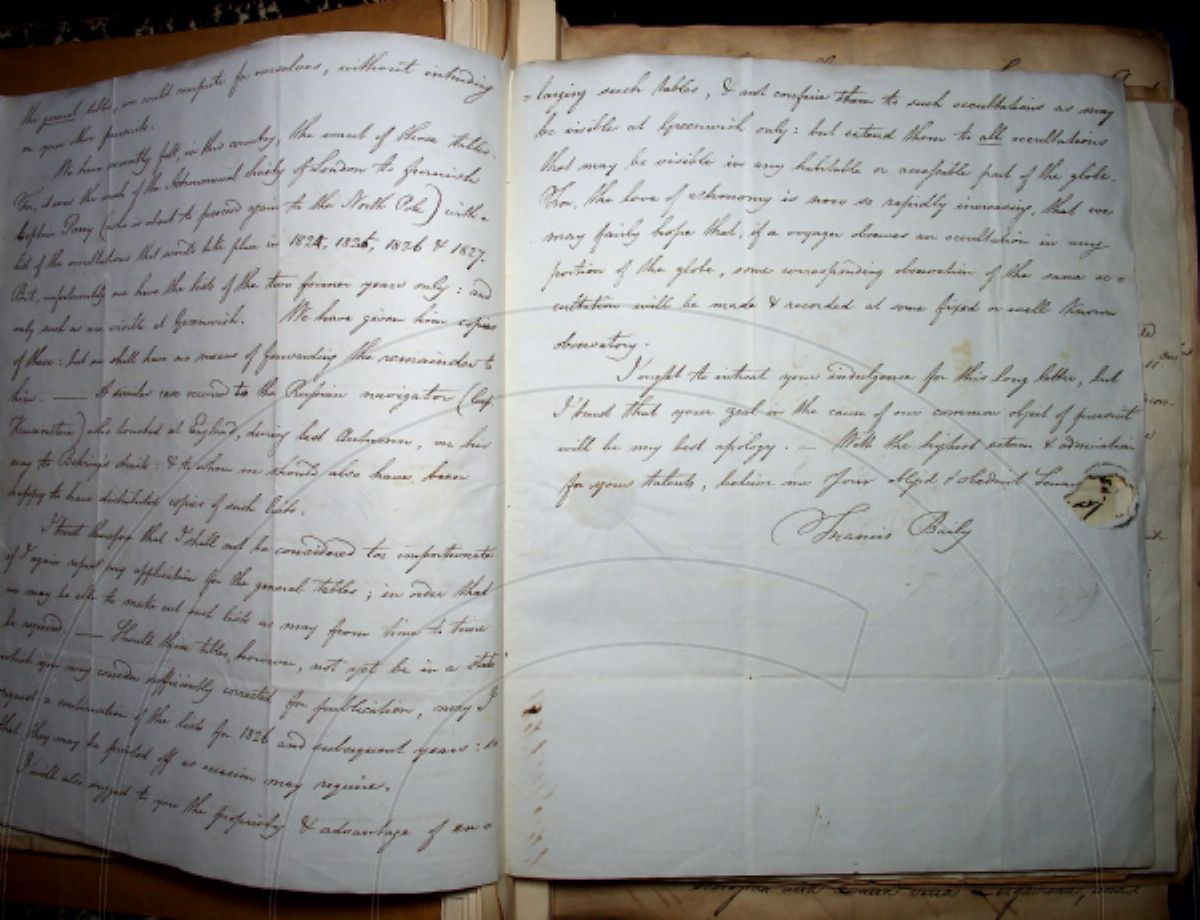 the general tables, we could compute for ourselves, without intruding
on your time
We have recently felt, in this country, the want of those tables.
For, it was the wish of the Astronomical Society of London to furnish
Captain Parry (who is about to proceed again to the North Pole) with a
list of the occultations that would take place in 1824, 1825, 1826 & 1827.
But, unfortunately we have the lists of the two former years only: and
only such as are visible at Greenwich. We have given him copies
of these: but we shall have no means of forwarding the remainder to
him. — A similar case occurred to the Russian navigator (Capt.
who touched at England, during last Autumn, on his
way to Behrings straits: & to whom we should also have been
happy to have distributed copies of such lists.
I trust therefore that I shall not be considered too importunate
if I again repeat my application for the general tables; in order that
we may be able to make out such lists as may from time to time
be required. — Should those tables, however, not yet be in a state
which you may consider sufficiently corrected for publication, may I
request a continuation of the lists for 1826 and subsequent years: so
that they may be printed off as occasion may require.
I will also suggest to you the propriety & advantage of en=
=larging such tables, & not confine them to such occultations as may
be visible at Greenwich only: but extend them to all occultations
that may be visible in any habitable or accessible part of the globe.
For, the love of astronomy is now so rapidly increasing, that we
may fairly hope that, if a voyager observes an occultation in any
portion of the globe, some corresponding observation of the same oc=
cultation will be made & recorded at some fixed or well known
observatory.
I ought to intreat your indulgence for this long letter, but
I trust that your zeal in the cause of our common object of pursuit
will be my best apology. — With the highest esteem & admiration
for your talents, believe me Your oblig'd & obedient
Francis Baily